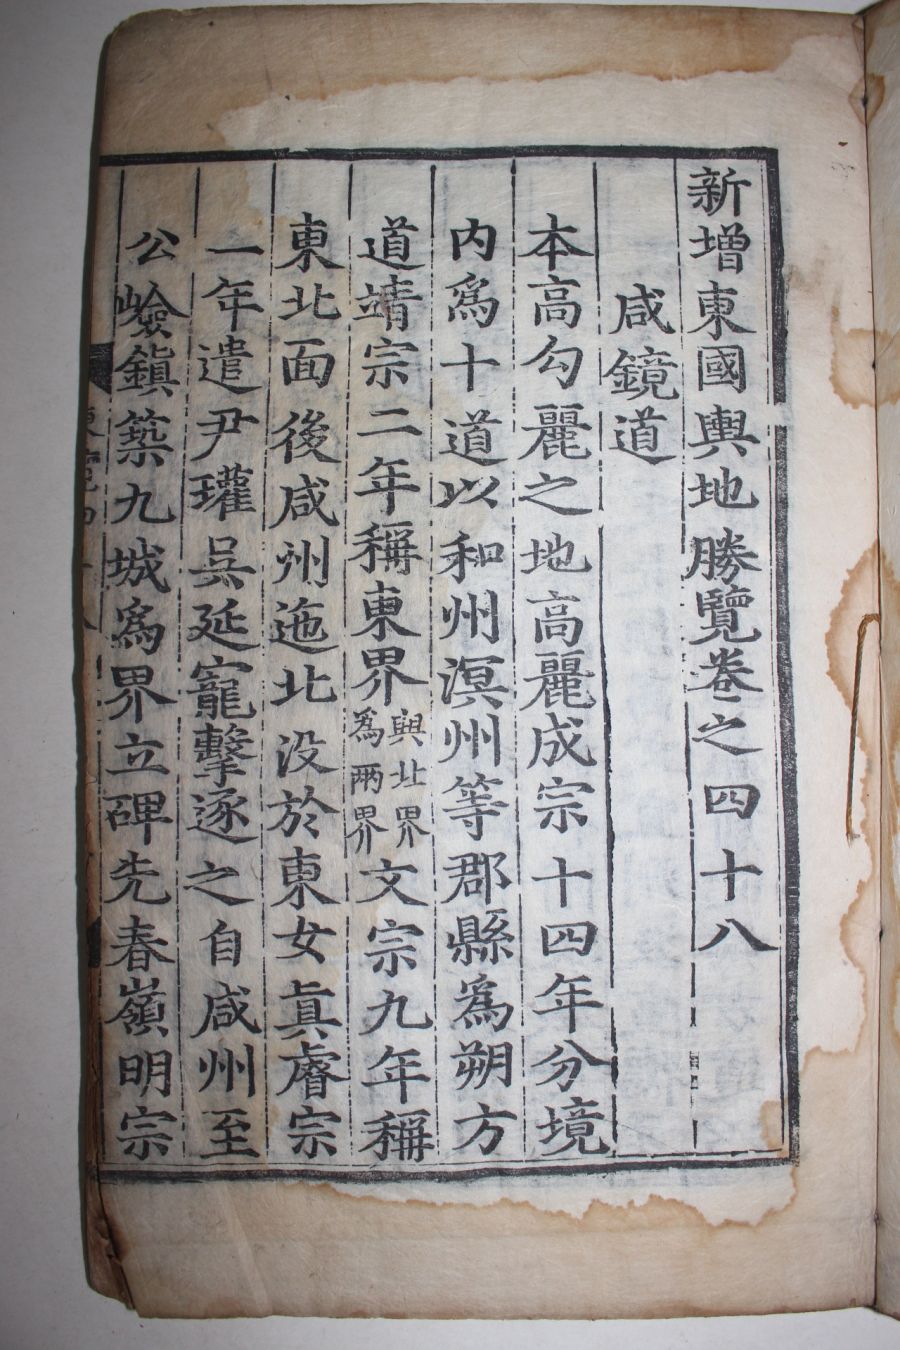 新增東國輿地勝覽卷之四十八
咸鏡道
本高勾麗之地高麗成宗十四年分境
内爲十道以和州溟州等郡縣爲朔方
道靖宗二年稱東界與北界爲兩界文宗九年稱
東北面後咸州迤北没於東女眞睿宗
一年遣尹瓘吳延寵擊逐之自咸州至
公嶮鎮築九城爲界立碑先春嶺明宗